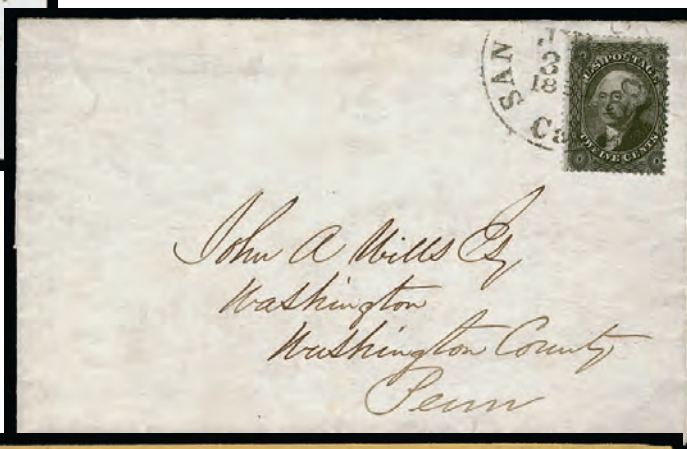 SAN
18
U.S. POSTAGE
TWELVE CENTS
John A Wills Esq
Washington
Washington County
Penn